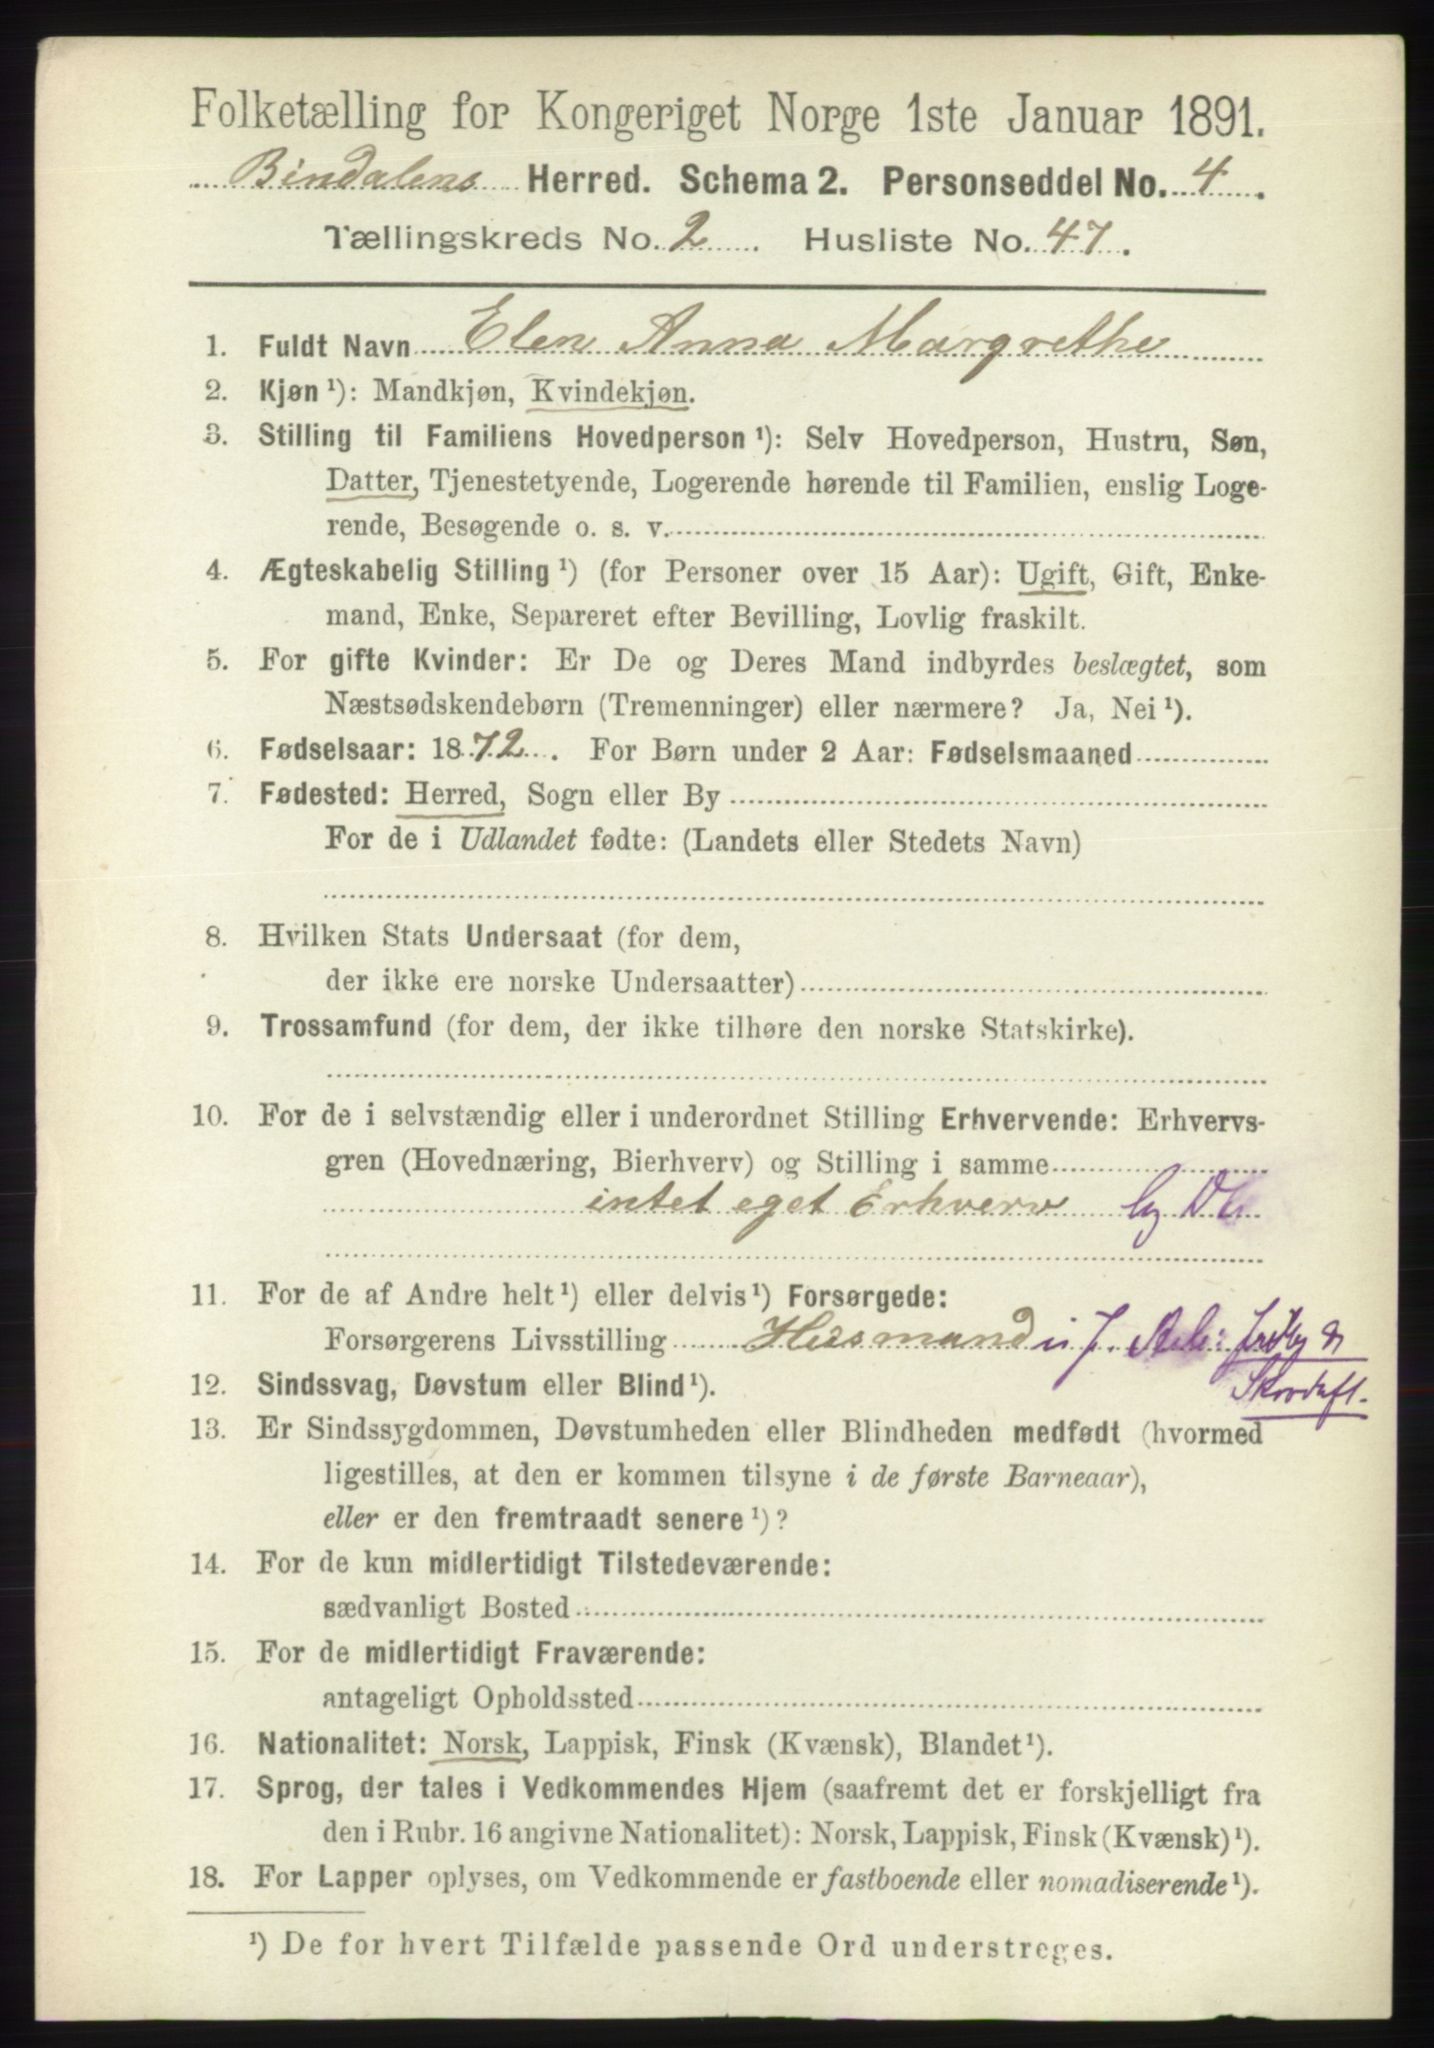 Folketælling for Kongeriget Norge 1ste Januar 1891.
Bindalens Herred. Schema 2. Personseddel No. 4.
Tællingskreds No. 2. Husliste No. 47.
1. Fuldt Navn Elen Anna Margrethe
2. Kjøn ¹): Mandkjøn, Kvindekjøn.
3. Stilling til Familiens Hovedperson ¹): Selv Hovedperson, Hustru, Søn,
Datter, Tjenestetyende, Logerende hørende til Familien, enslig Loge-
rende, Besøgende o. s. v.
4. Ægteskabelig Stilling ¹) (for Personer over 15 Aar): Ugift, Gift, Enke-
mand, Enke, Separeret efter Bevilling, Lovlig fraskilt.
5. For gifte Kvinder: Er De og Deres Mand indbyrdes beslægtet, som
Næstsødskendebørn (Tremenninger) eller nærmere? Ja, Nei ¹).
6. Fødselsaar: 1872. For Børn under 2 Aar: Fødselsmaaned
7. Fødested: Herred, Sogn eller By
For de i Udlandet fødte: (Landets eller Stedets Navn)
8. Hvilken Stats Undersaat (for dem,
der ikke ere norske Undersaatter)
9. Trossamfund (for dem, der ikke tilhøre den norske Statskirke).
10. For de i selvstændig eller i underordnet Stilling Erhvervende: Erhvervs-
gren (Hovednæring, Bierhverv) og Stilling i samme
intet eget Erhverv
11. For de af Andre helt ¹) eller delvis ¹) Forsørgede:
Forsørgerens Livsstilling Husmand i J.
12. Sindssvag, Døvstum eller Blind ¹).
13. Er Sindssygdommen, Døvstumheden eller Blindheden medfødt (hvormed
ligestilles, at den er kommen tilsyne i de første Barneaar),
eller er den fremtraadt senere ¹)?
14. For de kun midlertidigt Tilstedeværende:
sædvanligt Bosted
15. For de midlertidigt Fraværende:
antageligt Opholdssted
16. Nationalitet: Norsk, Lappisk, Finsk (Kvænsk), Blandet ¹).
17. Sprog, der tales i Vedkommendes Hjem (saafremt det er forskjelligt fra
den i Rubr. 16 angivne Nationalitet): Norsk, Lappisk, Finsk (Kvænsk) ¹).
18. For Lapper oplyses, om Vedkommende er fastboende eller nomadiserende ¹).
¹) De for hvert Tilfælde passende Ord understreges.